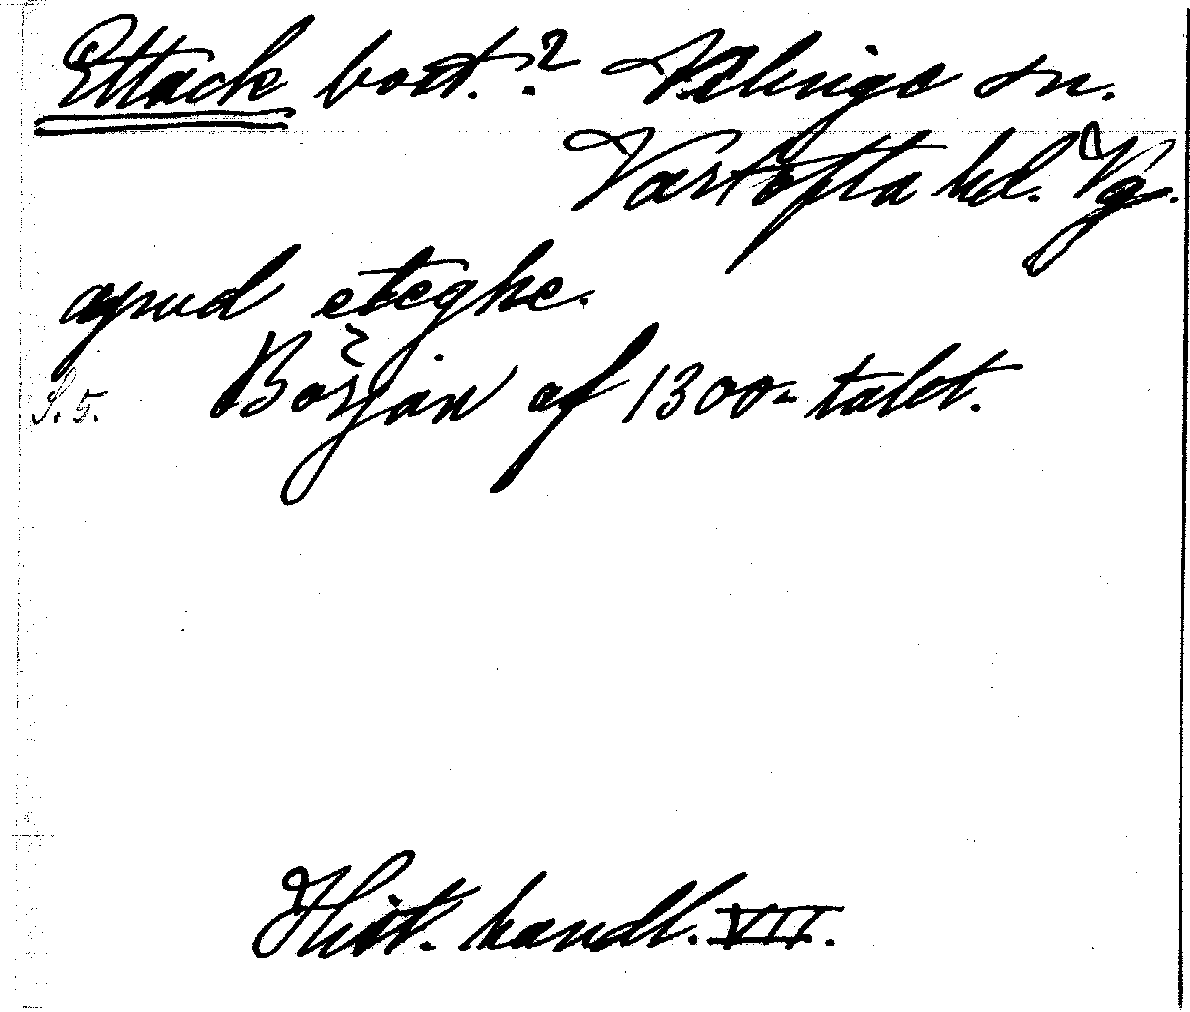 Ettack bost.? Velinge sn.
Vartofta hd. Vg.
apud eteghe.
S. 5. Början af 1300-talet.
Hist. handl. VII.